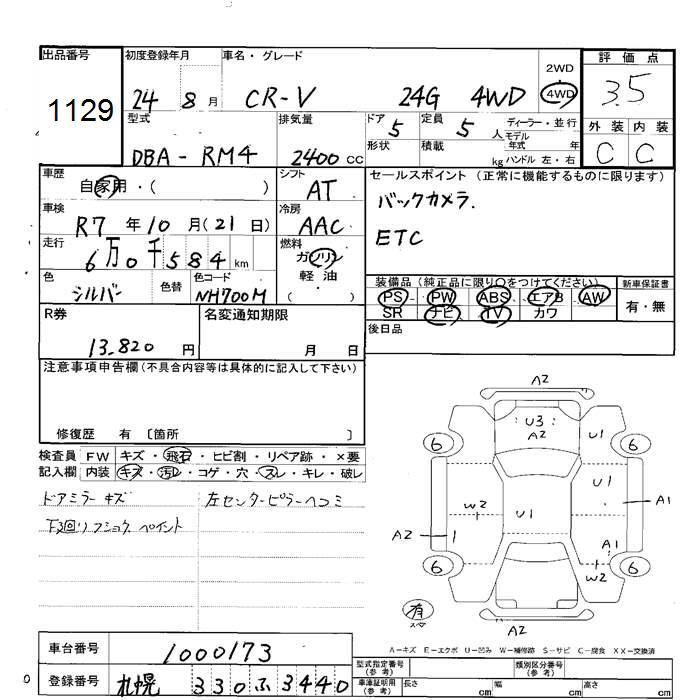 出品番号
1129
初度登録年月
24 8 月
車名・グレード
CR-V 24G 4WD
2WD
4WD
評価点
3.5
外装 内装
C C
型式
DBA-RM4
排気量
2400 CC
ドア 5
形状
定員 5 人
積載 kg
ディーラー・並行
モデル
年式 年
ハンドル 左・右
車歴
自家用・( )
シフト
AT
セールスポイント (正常に機能するものに限ります)
バックカメラ.
ETC
車検
R7 年 10 月 (21 日)
冷房
AAC
走行
6万0千584 km
燃料
ガソリン
軽油
( )
色
シルバー
色替
色コード
NH700M
装備品 (純正品に限り○をつけてください)
PS PW ABS エアB AW
SR ナビ TV カワ
新車保証書
有・無
後日品
R券
13,820 円
名変通知期限
月 日
注意事項申告欄 (不具合内容等は具体的に記入して下さい)
修復歴 有 〔箇所 〕
検査員 FW キズ・飛石・ヒビ割・リペア跡・×要
記入欄 内装 キズ・汚レ・コゲ・穴・スレ・キレ・破レ
ドアミラー キズ
左センターピラーヘコミ
下回リ ペイント
A2
U3
A2
U1
6 6
W2
U1
U1
A1
A2
1
A1
W2
6 6
有
スペア
A2
A-キズ E-エクボ U-凹み W-補修跡 S-サビ C-腐食 XX-交換済
車台番号
1000173
登録番号
札幌 330 ふ 3440
型式指定番号
(参考)
類別区分番号
(参考)
車庫証明用
(参考)
長さ cm
幅 cm
高さ cm